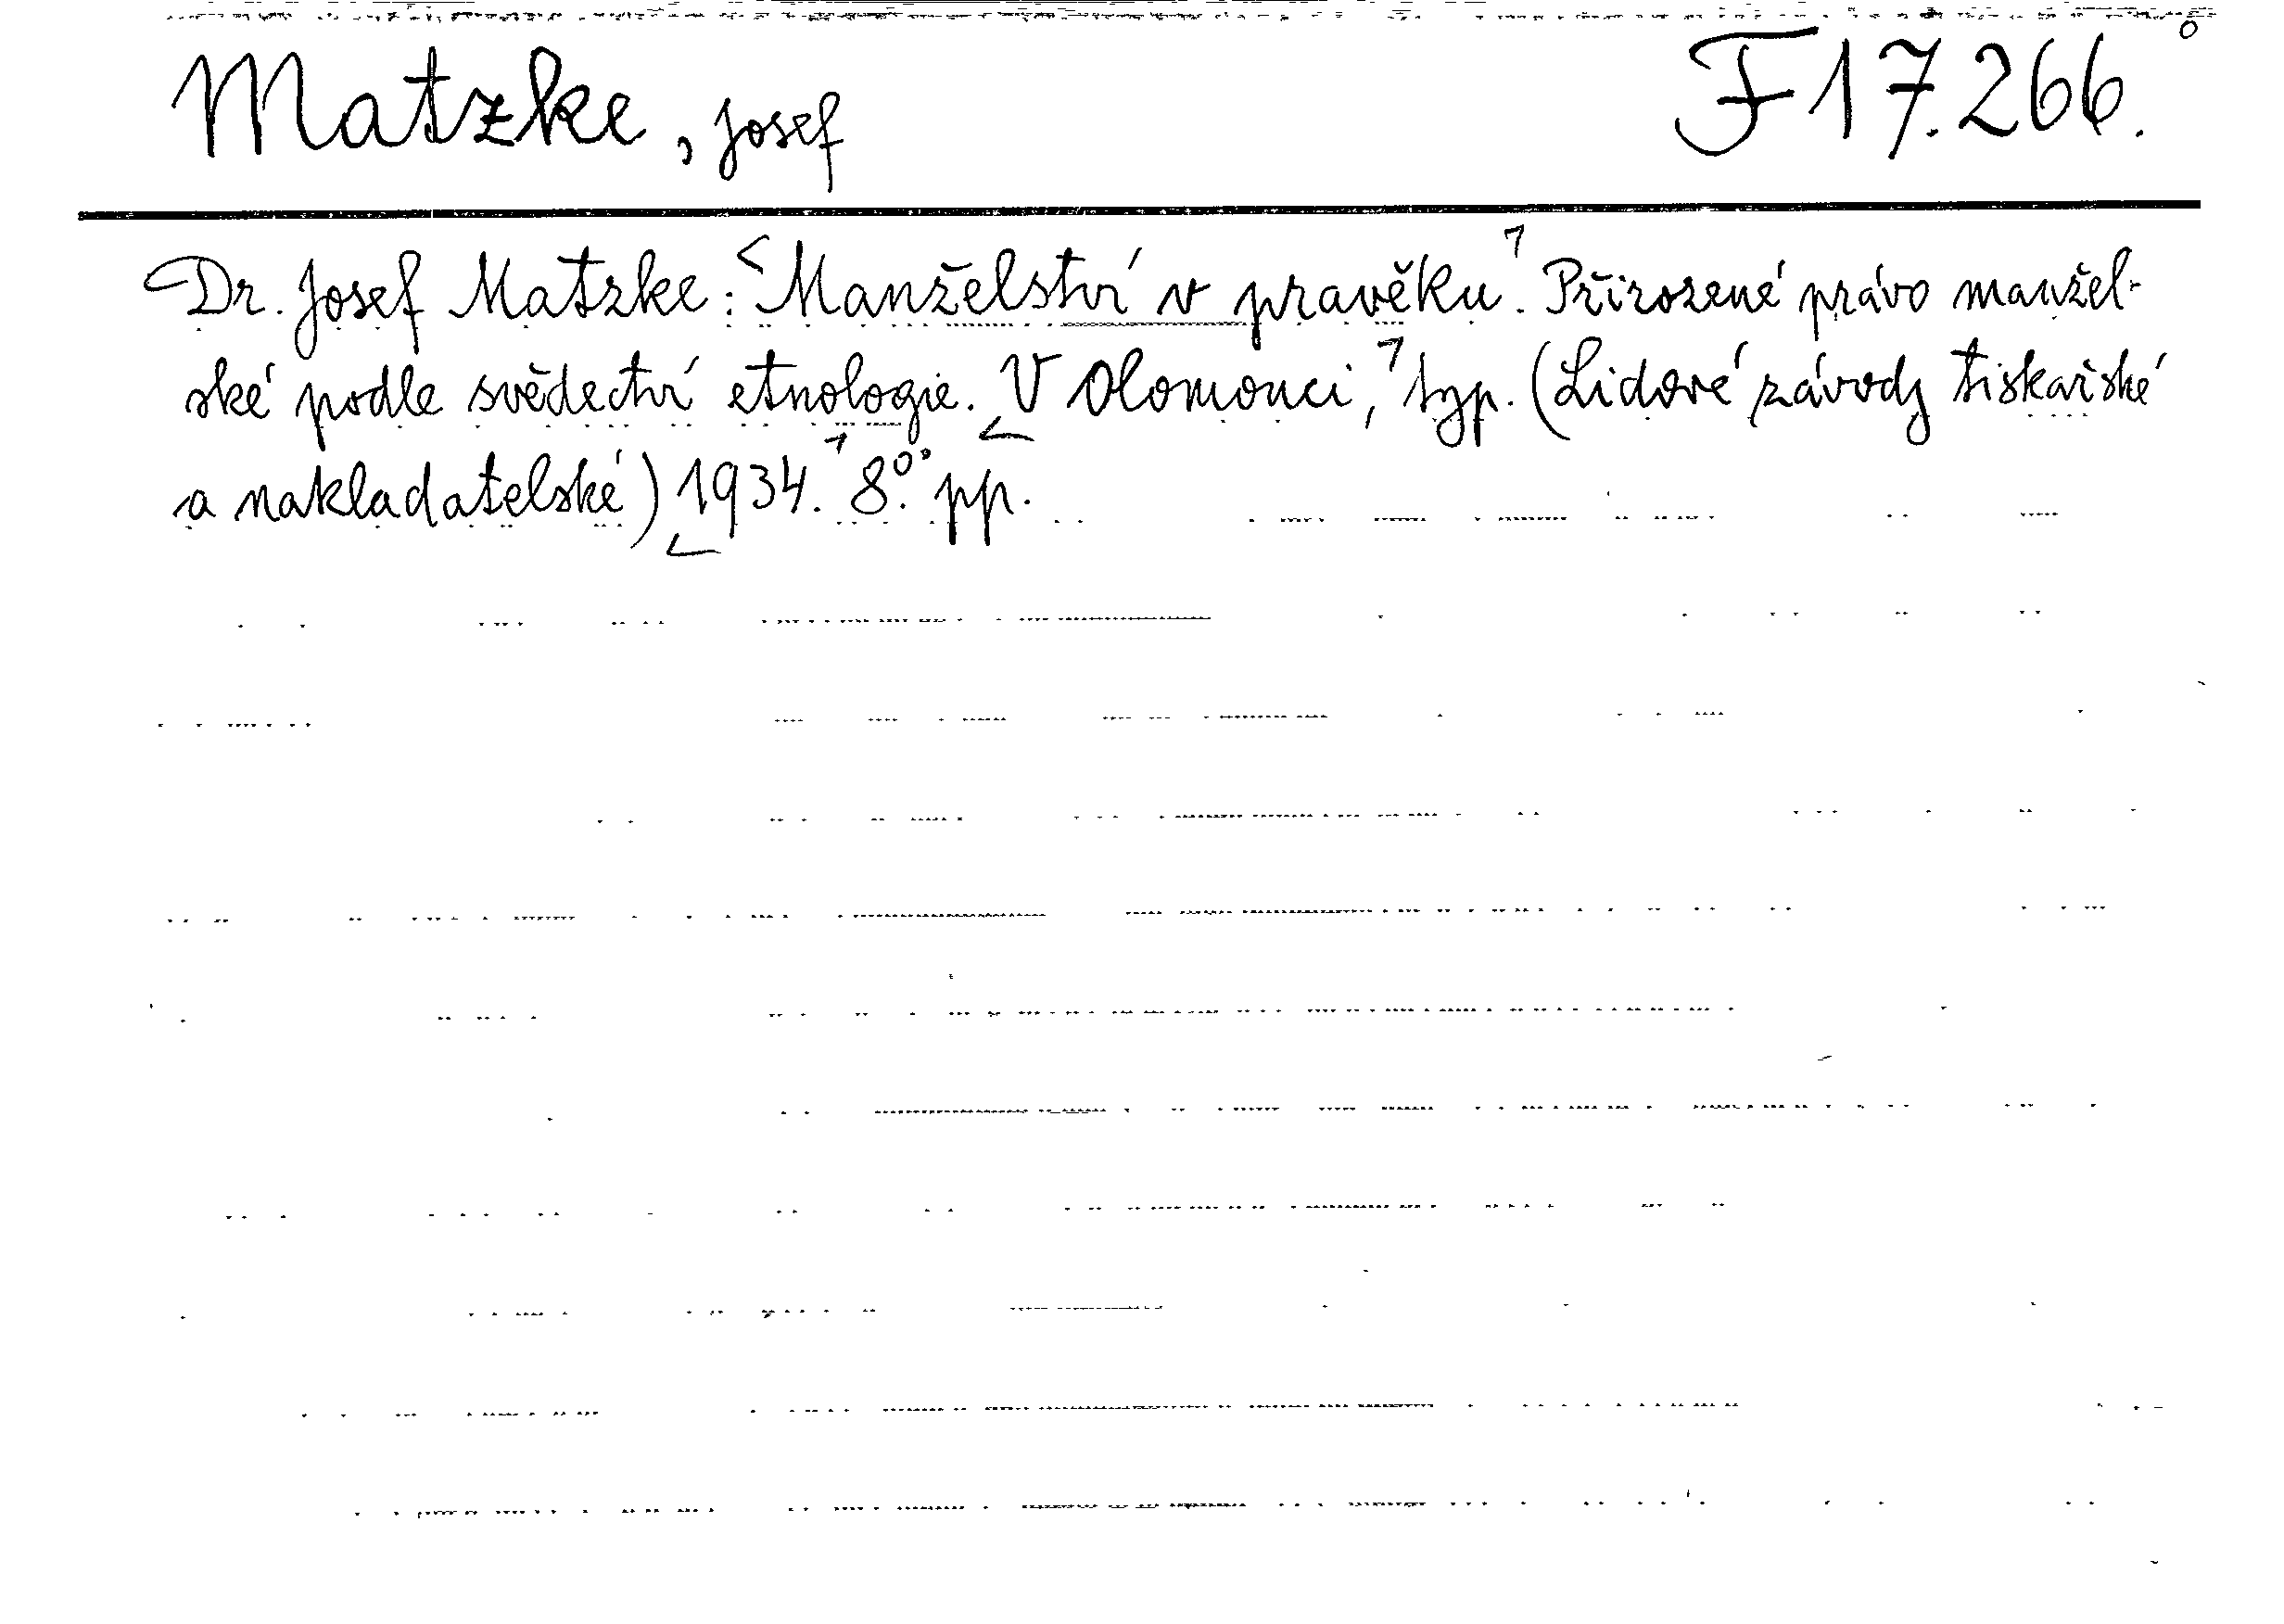 Matzke, Josef F 17.266.
Dr. Josef Matzke: Manželství v pravěku. Přirozené právo manžel-
ské podle svědectví etnologie. V Olomouci, typ. (Lidové závody tiskařské
a nakladatelské) 1934. 8°. pp.